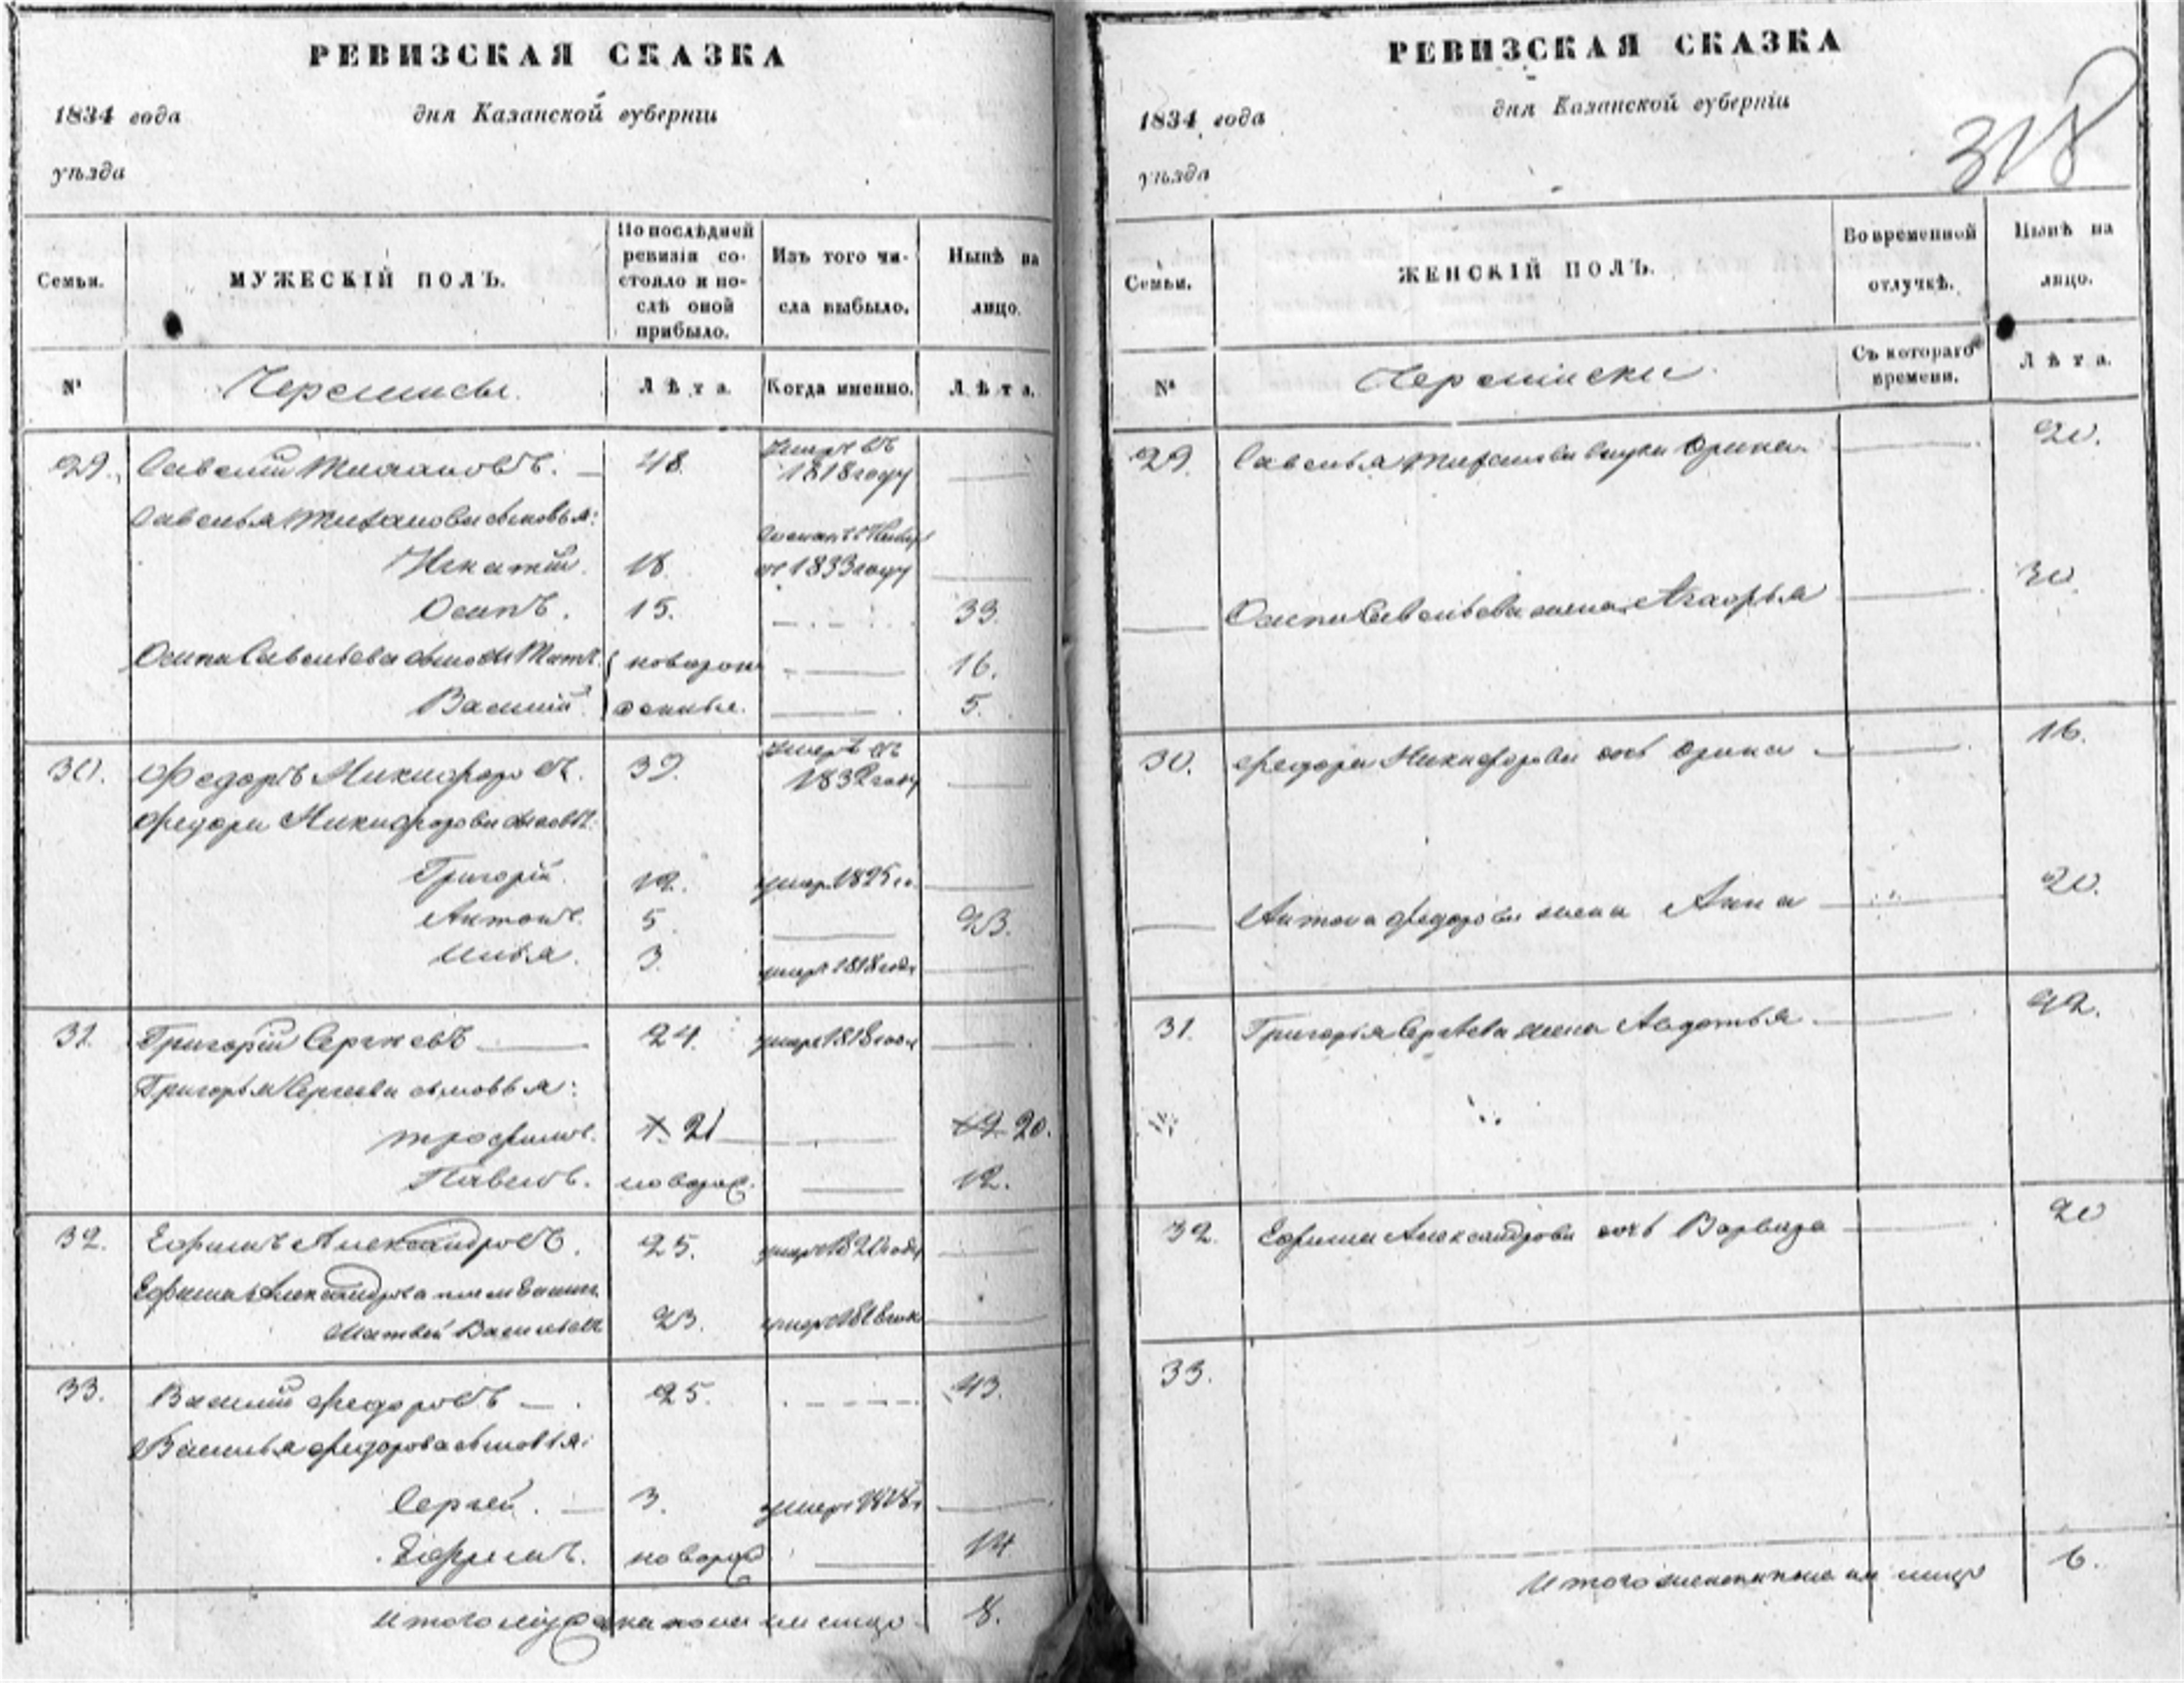 РЕВИЗСКАЯ СКАЗКА
1834 года дня Казанской губерніи
уѣзда
Семьи.
МУЖЕСКІЙ ПОЛЪ.
По послѣдней ревизіи состояло и послѣ оной прибыло.
Изъ того числа выбыло.
Нынѣ на лицо.
№
Черемисы.
Лѣта.
Когда именно.
Лѣта.
29. Савелій 48. умеръ въ 1818 году
Савелья сыновья:
Игнатій. 18. 1833 году
Осипъ. 15. 33.
Осипа Савельева новорож 16.
Василій. денные. 5.
30. Федоръ Никифоровъ. 39. умеръ въ 1832 году
Федора Никифорова сыновья:
Григорій. 12. умер. 1825 го.
Антонъ. 5. 23.
Илья. 3. умеръ 1818 года
31. Григорій Сергѣевъ 24. умеръ 1818 года
Григорья Сергѣева сыновья:
Трофимъ. 21 20.
Павелъ. новорож. 12.
32. Ефимъ Александровъ. 25. умеръ 1820 года
Ефима Александрова
Матвей Васильевъ 23. умеръ
33. Василій Федоровъ 25. 43.
Василья Федорова сыновья:
Сергей. 3. умеръ
Ефремъ. новорож 14
Итого мужска пола на лицо 8.
РЕВИЗСКАЯ СКАЗКА
1834 года дня Казанской губерніи
уѣзда
318
Семьи.
ЖЕНСКІЙ ПОЛЪ.
Во временной отлучкѣ.
Нынѣ на лицо.
№
Черемиски.
Съ котораго времени.
Лѣта.
29. Савелья Орина 20.
Осипа Савельева жена 30.
30. Федора Никифорова дочь Орина 16.
Антона Федорова жена Анна 20.
31. Григорья Сергѣева жена Авдотья 42.
32. Ефима Александрова дочь Варвара 20
33.
Итого женска пола на лицо 6.